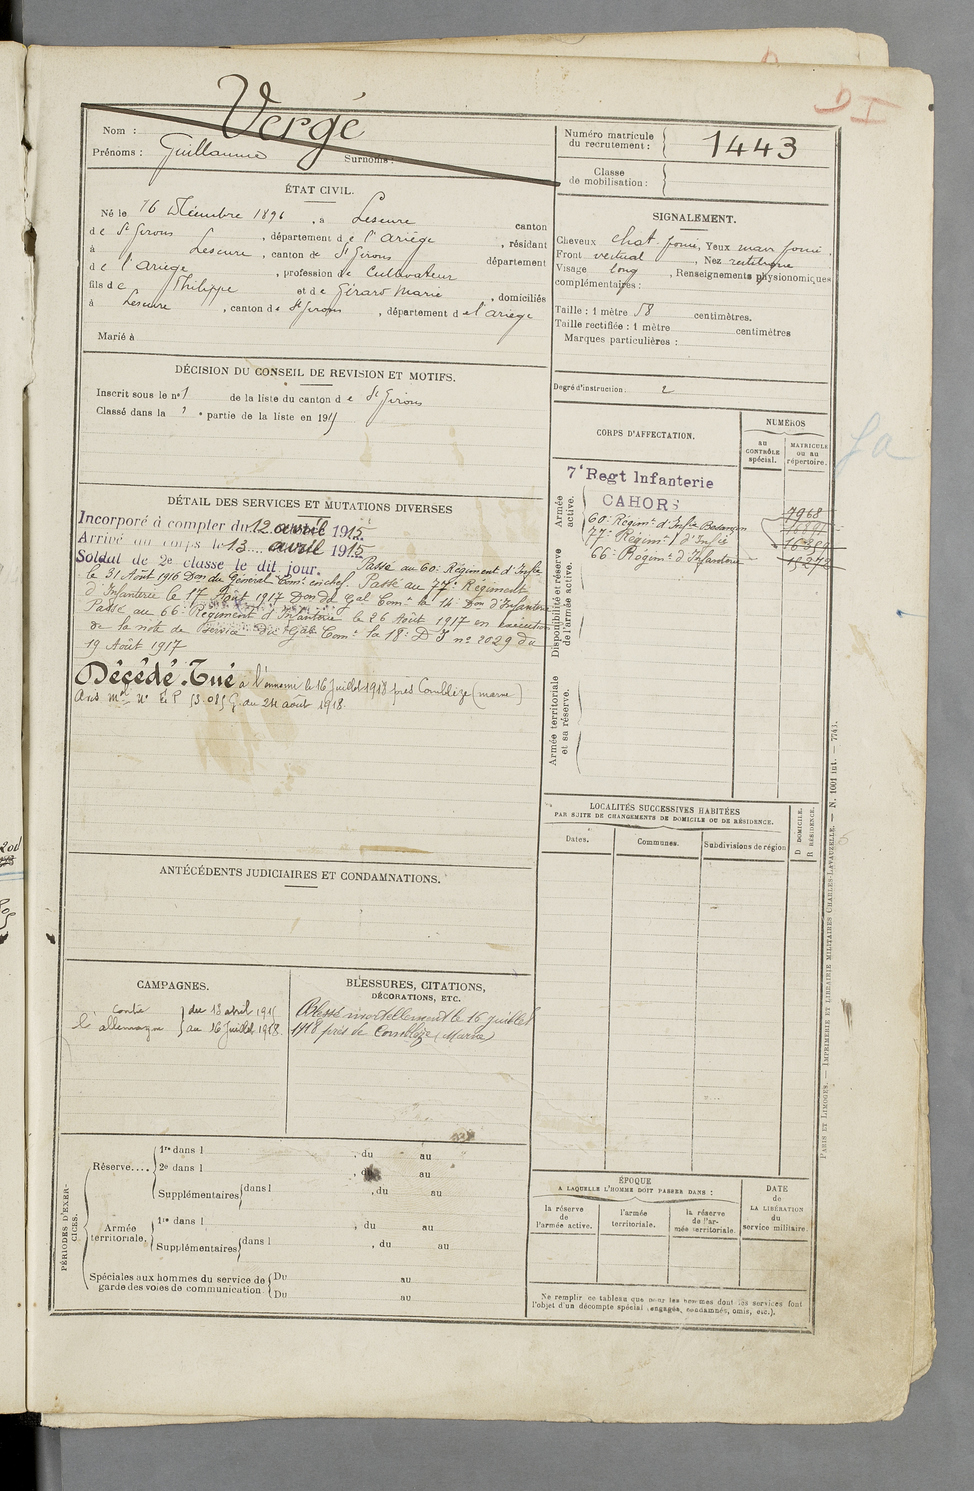 DI
Nom : Vergé
Prénoms : Guillaume Surnoms :
Numéro matricule du recrutement : 1443
Classe de mobilisation :
ÉTAT CIVIL.
Né le 16 Décembre 1896, à Lescure canton
de St Girons, département de l'Ariège, résidant
à Lescure, canton de St Girons département
de l'Ariège, profession de Cultivateur
fils de Philippe et de Girard Marie, domiciliés
à Lescure, canton de St Girons, département de l'Ariège
Marié à
SIGNALEMENT.
Cheveux chat. foncé, Yeux marr foncé,
Front vertical, Nez rectiligne
Visage long, Renseignements physionomiques
complémentaires :
Taille : 1 mètre 58 centimètres.
Taille rectifiée : 1 mètre centimètres
Marques particulières :
Degré d'instruction : 2
DÉCISION DU CONSEIL DE REVISION ET MOTIFS.
Inscrit sous le n° 1 de la liste du canton de St Girons
Classé dans la 1e partie de la liste en 1915
CORPS D'AFFECTATION.
NUMÉROS
au CONTRÔLE spécial.
MATRICULE ou au répertoire.
Armée active.
7e Regt Infanterie
CAHORS
60e Régimt d'Infie Besançon
77e Régimt d'Infie
66e Régimt d'Infanterie
7968
Disponibilité et réserve de l'armée active.
Armée territoriale et sa réserve.
DÉTAIL DES SERVICES ET MUTATIONS DIVERSES
Incorporé à compter du 12 avril 1915
Arrivé au corps le 13 avril 1915
Soldat de 2e classe le dit jour. Passé au 60e Régiment d'Infie
le 31 Août 1916 Don du Général Comt en chef. Passé au 77e Régiment
d'Infanterie le 17 Août 1917 Don du Gal Comt la 14e Don d'Infanterie
Passé au 66e Régiment d'Infanterie le 26 Août 1917 en exécution
de la note de Service du Gal Comt la 18e D I n° 2029 du
19 Août 1917
Décédé. Tué à l'ennemi le 16 Juillet 1918 près Comblizy (Marne)
Avis mel N° E.P. 53.085 G. du 24 août 1918.
LOCALITÉS SUCCESSIVES HABITÉES
PAR SUITE DE CHANGEMENTS DE DOMICILE OU DE RÉSIDENCE.
Dates.
Communes.
Subdivisions de région
D DOMICILE.
R RÉSIDENCE.
ANTÉCÉDENTS JUDICIAIRES ET CONDAMNATIONS.
CAMPAGNES.
contre du 13 avril 1915
l'allemagne au 16 Juillet 1918.
BLESSURES, CITATIONS,
DÉCORATIONS, ETC.
Blessé mortellement le 16 juillet
1918 près de Comblizy (Marne)
PÉRIODES D'EXERCICES.
Réserve....
1re dans l , du au
2e dans l , du au
Supplémentaires dans l , du au
Armée territoriale.
1re dans l , du au
Supplémentaires dans l , du au
Spéciales aux hommes du service de garde des voies de communication.
Du au
Du au
ÉPOQUE
A LAQUELLE L'HOMME DOIT PASSER DANS :
la réserve de l'armée active.
l'armée territoriale.
la réserve de l'armée territoriale.
DATE de LA LIBÉRATION du service militaire.
Ne remplir ce tableau que pour les hommes dont les services font
l'objet d'un décompte spécial (engagés, condamnés, omis, etc.).
PARIS ET LIMOGES. — IMPRIMERIE ET LIBRAIRIE MILITAIRES CHARLES-LAVAUZELLE. — N. 1001 int. — 7743.